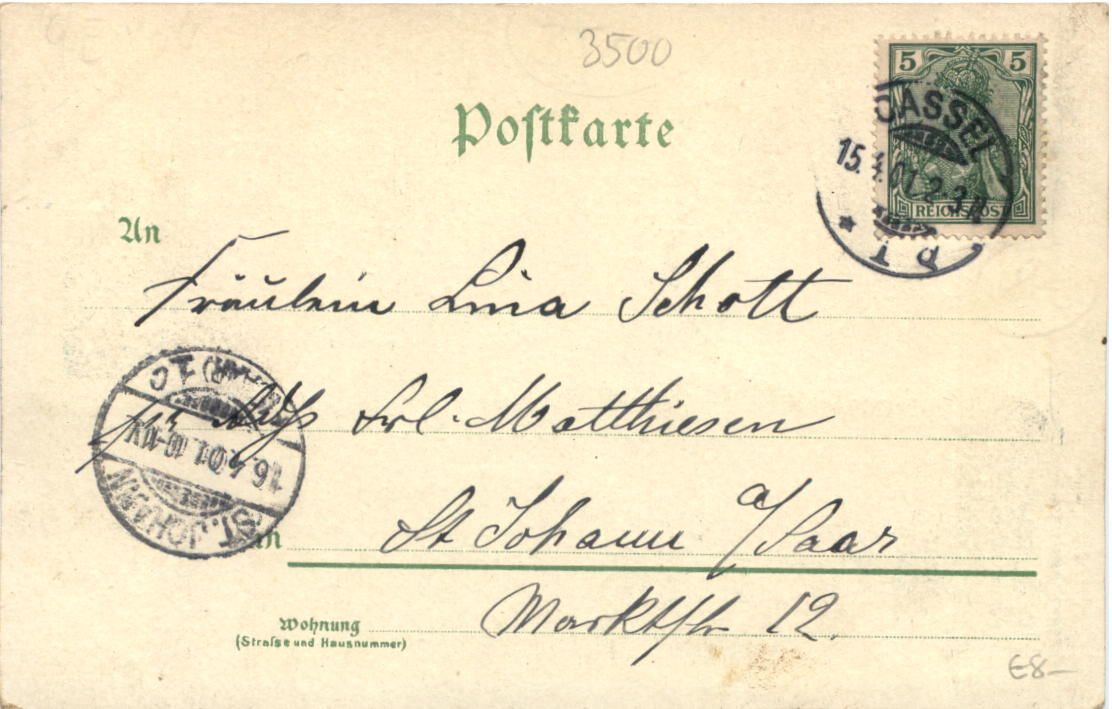 3500
Postkarte
5 5
CASSEL
15.4.01.2-3N
REICHSPOST
* 1 d
An
Fräulein Lina Schott
Adr. Frl. Matthiesen
ST. JOHANN
16.4.01.10-11V.
(SAAR) 1 c
in St Johann a/Saar
Wohnung
(Straße und Hausnummer)
Marktstr 12.
€8–